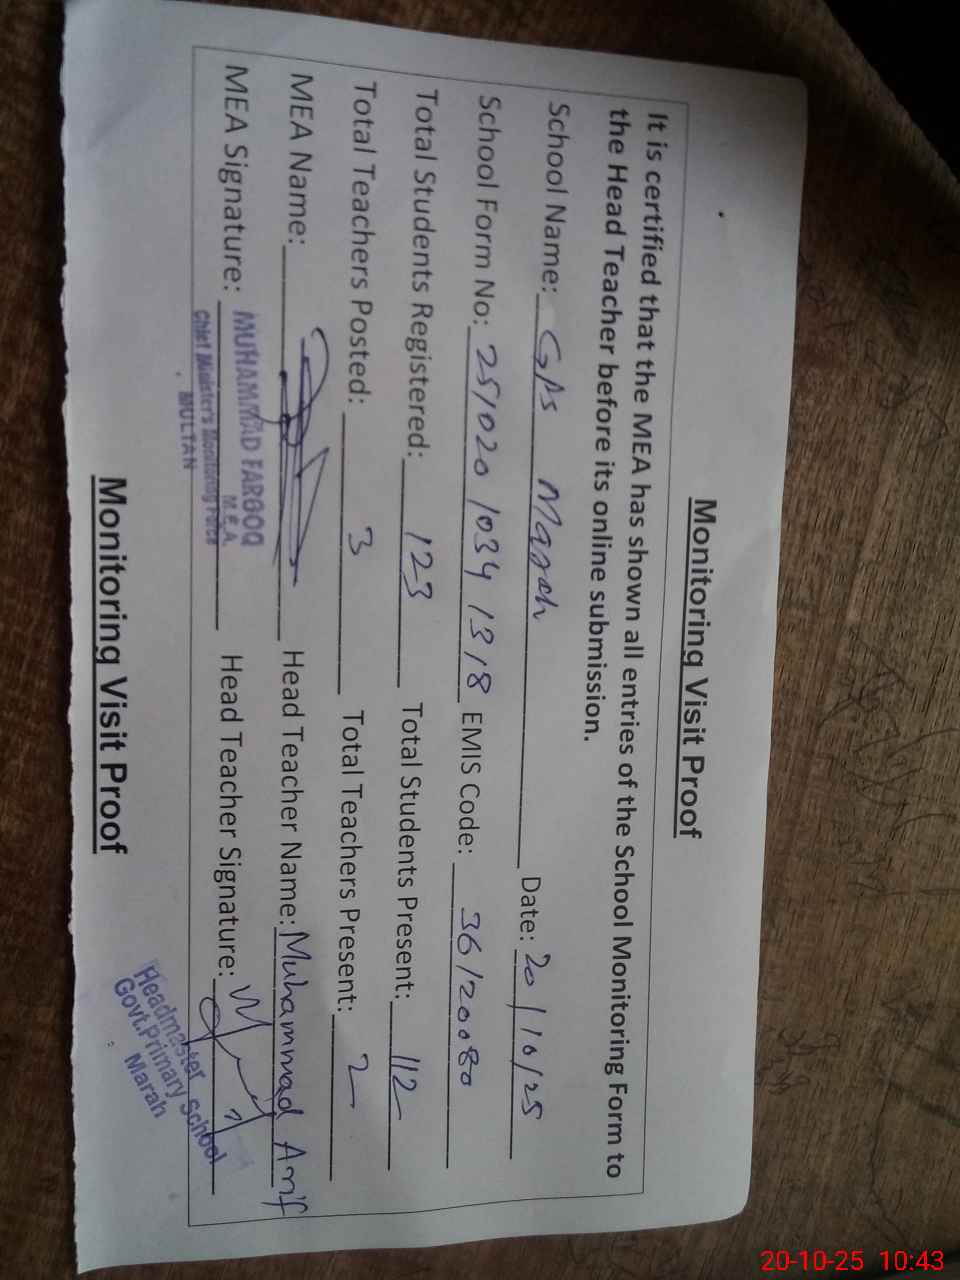 Monitoring Visit Proof
It is certified that the MEA has shown all entries of the School Monitoring Form to
the Head Teacher before its online submission.
School Name: GPS Marah Date: 20/10/25
School Form No: 251020 1034 1318 EMIS Code: 36120080
Total Students Registered: 123 Total Students Present: 112
Total Teachers Posted: 3 Total Teachers Present: 2
MEA Name: Head Teacher Name: Muhammad Arif
MEA Signature: Head Teacher Signature:
MUHAMMAD FAROOQ
M.E.A.
Chief Minister's Monitoring Force
MULTAN
Headmaster
Govt.Primary School
Marah
Monitoring Visit Proof
20-10-25 10:43